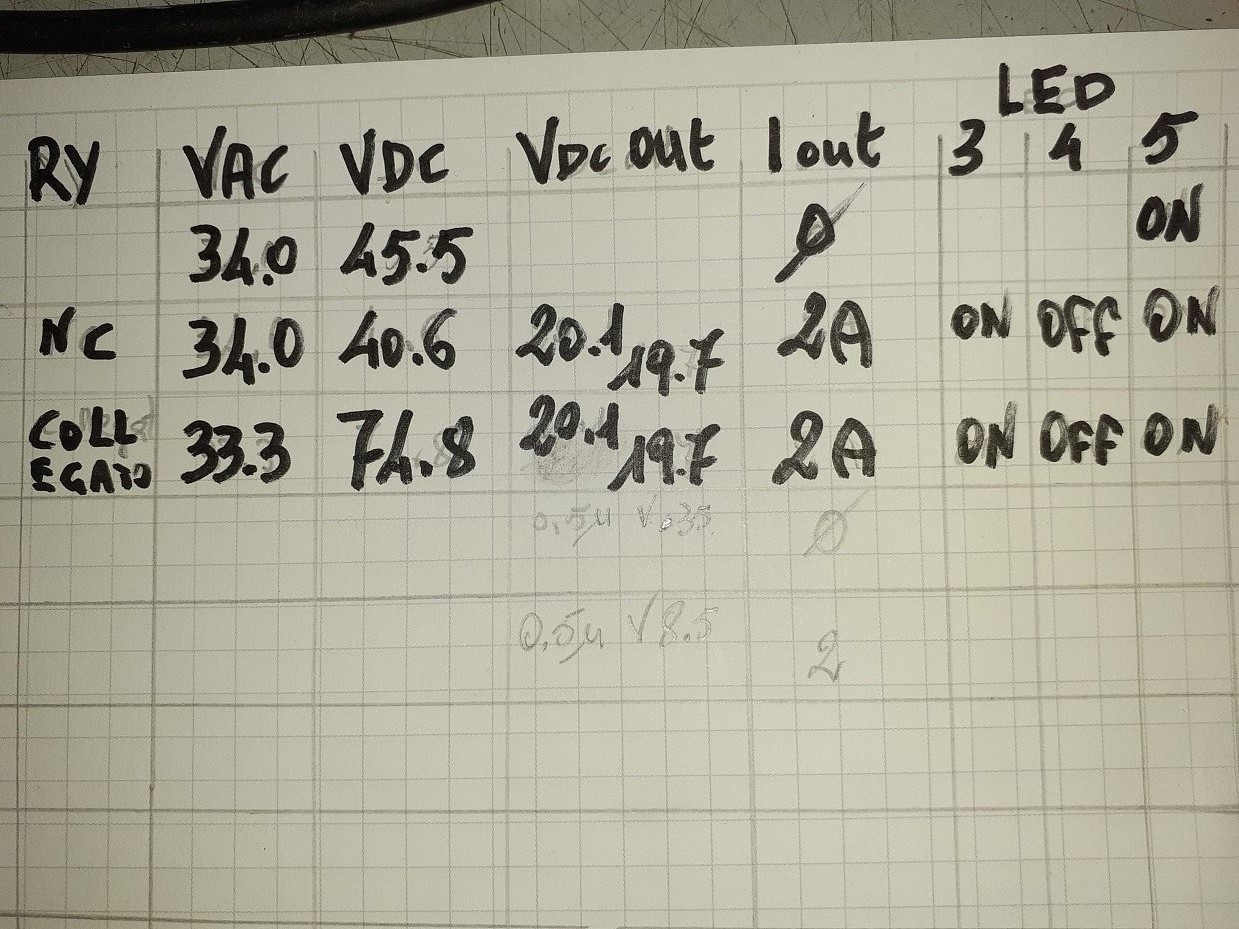 LED
RY VAC VDC VDC out I out 3 4 5
34.0 45.5 Ø ON
NC 34.0 40.6 20.1 19.7 2A ON OFF ON
COLL EGATO 33.3 74.8 20.1 19.7 2A ON OFF ON
0,5µ V .35 Ø
0,5µ V 8.5 2